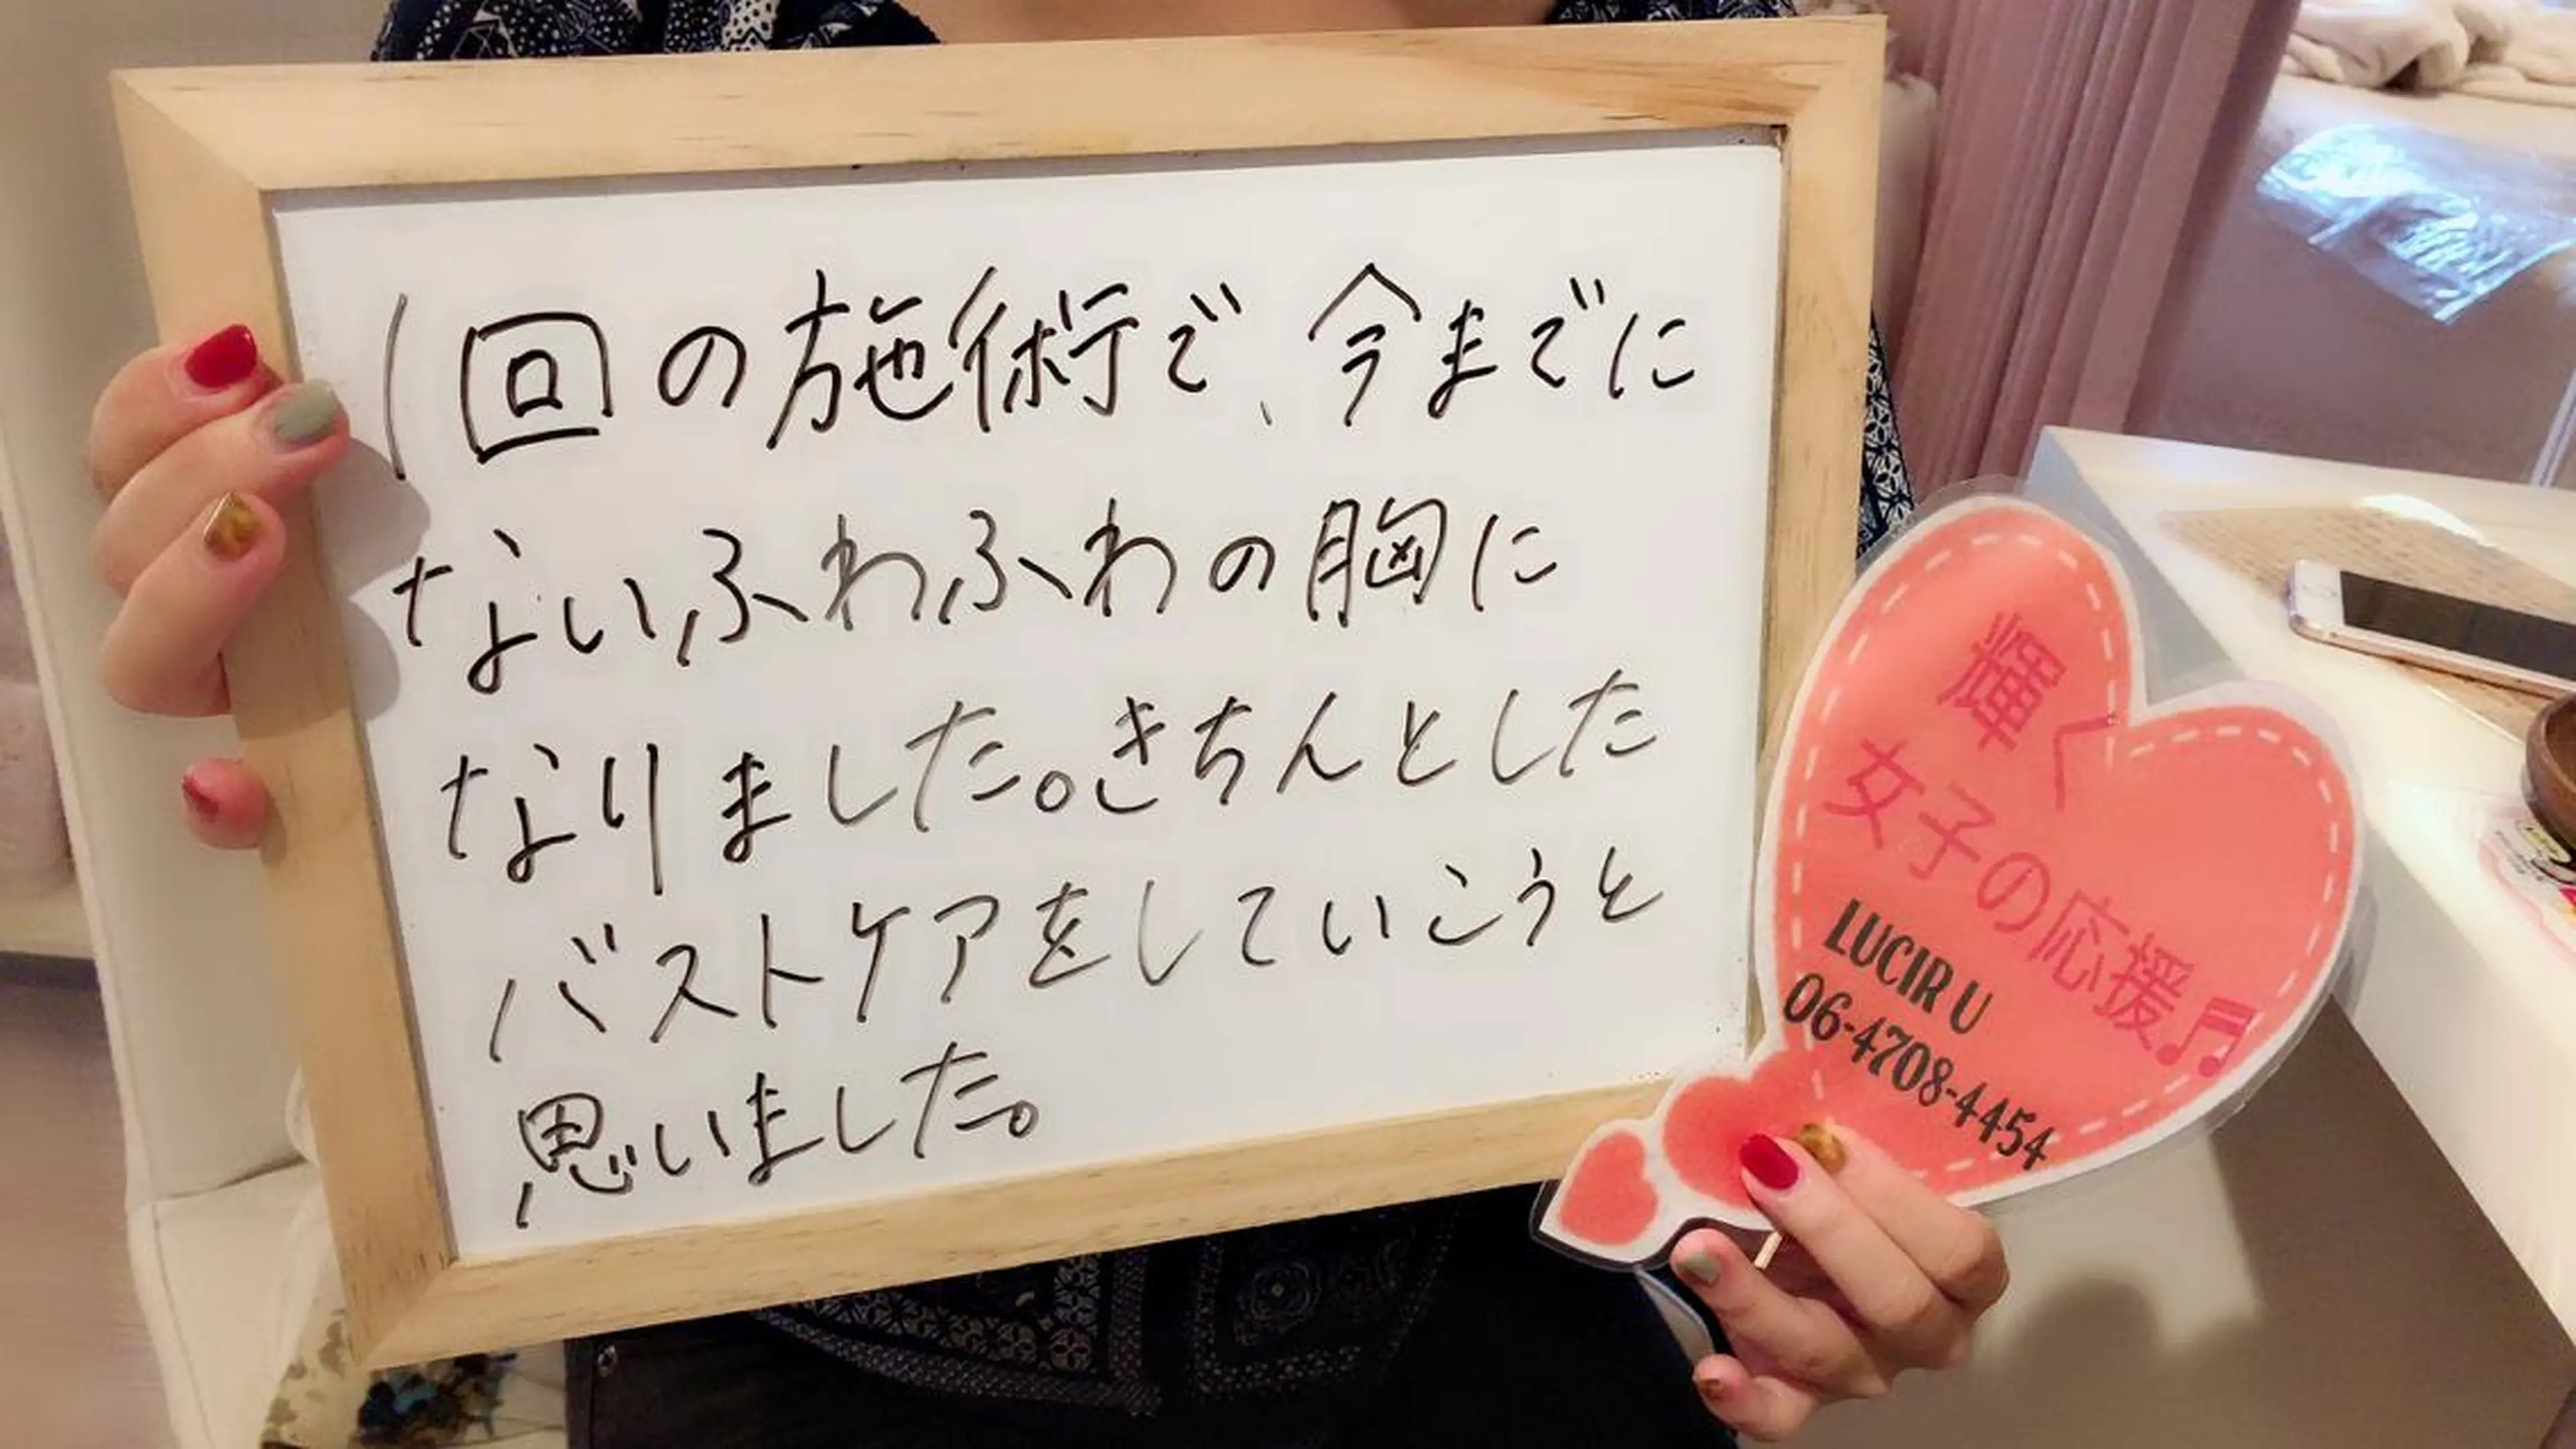 1回の施術で、今までに
ないふわふわの胸に
なりました。きちんとした
バストケアをしていこうと
思いました。
輝く
女子の応援♬
LUCIR U
06-4708-4454